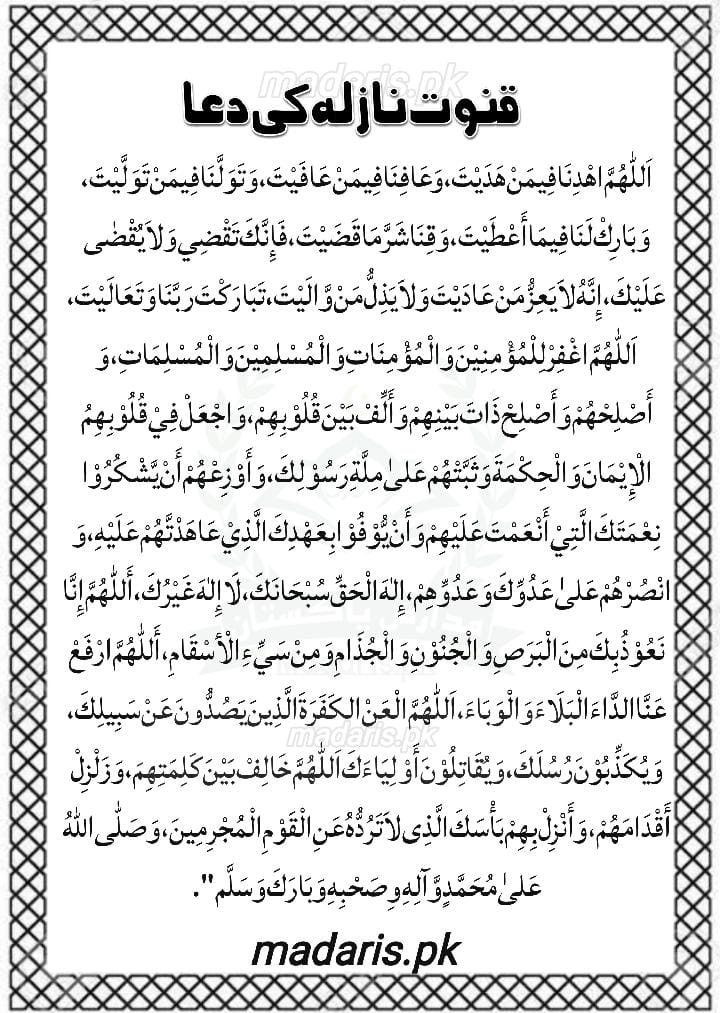 madaris.pk
قنوت نازلہ کی دعا
اَللّٰهُمَّ اهْدِنَا فِيمَنْ هَدَيْتَ، وَعَافِنَا فِيمَنْ عَافَيْتَ، وَتَوَلَّنَا فِيمَنْ تَوَلَّيْتَ،
وَبَارِكْ لَنَا فِيمَا أَعْطَيْتَ، وَقِنَا شَرَّ مَا قَضَيْتَ، فَإِنَّكَ تَقْضِي وَلاَ يُقْضٰى
عَلَيْكَ، إِنَّهُ لاَ يَعِزُّ مَنْ عَادَيْتَ وَلاَ يَذِلُّ مَنْ وَّالَيْتَ، تَبَارَكْتَ رَبَّنَا وَتَعَالَيْتَ،
اَللّٰهُمَّ اغْفِرْ لِلْمُؤْمِنِيْنَ وَالْمُؤْمِنَاتِ وَالْمُسْلِمِيْنَ وَالْمُسْلِمَاتِ، وَ
أَصْلِحْهُمْ وَأَصْلِحْ ذَاتَ بَيْنِهِمْ وَأَلِّفْ بَيْنَ قُلُوْبِهِمْ، وَاجْعَلْ فِيْ قُلُوْبِهِمُ
الْإِيْمَانَ وَالْحِكْمَةَ وَثَبِّتْهُمْ عَلىٰ مِلَّةِ رَسُوْلِكَ، وَأَوْزِعْهُمْ أَنْ يَّشْكُرُوْا
نِعْمَتَكَ الَّتِيْ أَنْعَمْتَ عَلَيْهِمْ وَأَنْ يُّوْفُوْا بِعَهْدِكَ الَّذِيْ عَاهَدْتَّهُمْ عَلَيْهِ، وَ
انْصُرْهُمْ عَلىٰ عَدُوِّكَ وَعَدُوِّهِمْ، إِلٰهَ الْحَقِّ سُبْحَانَكَ، لَا إِلٰهَ غَيْرُكَ، أَللّٰهُمَّ إِنَّا
نَعُوْذُ بِكَ مِنَ الْبَرَصِ وَالْجُنُوْنِ وَالْجُذَامِ وَمِنْ سَيِّءِ الْأَسْقَامِ، أَللّٰهُمَّ ارْفَعْ
عَنَّا الدَّاءَ الْبَلَاءَ وَالْوَبَاءَ، اَللّٰهُمَّ الْعَنْ الكَفَرَةَ الَّذِينَ يَصُدُّونَ عَنْ سَبِيلِكَ،
madaris.pk
وَيُكَذِّبُوْنَ رُسُلَكَ، وَيُقَاتِلُوْنَ أَوْلِيَاءَكَ اَللّٰهُمَّ خَالِفْ بَيْنَ كَلِمَتِهِمَ، وَزَلْزِلْ
أَقْدَامَهُمْ، وَأَنْزِلْ بِهِمْ بَأْسَكَ الَّذِى لاَ تَرُدُّهُ عَنِ الْقَوْمِ الْمُجْرِمِينَ، وَصَلَّى اللّٰهُ
عَلىٰ مُحَمَّدٍ وَّآلِهٖ وِصَحْبِهٖ وَبَارَكَ وَسَلَّم".
madaris.pk